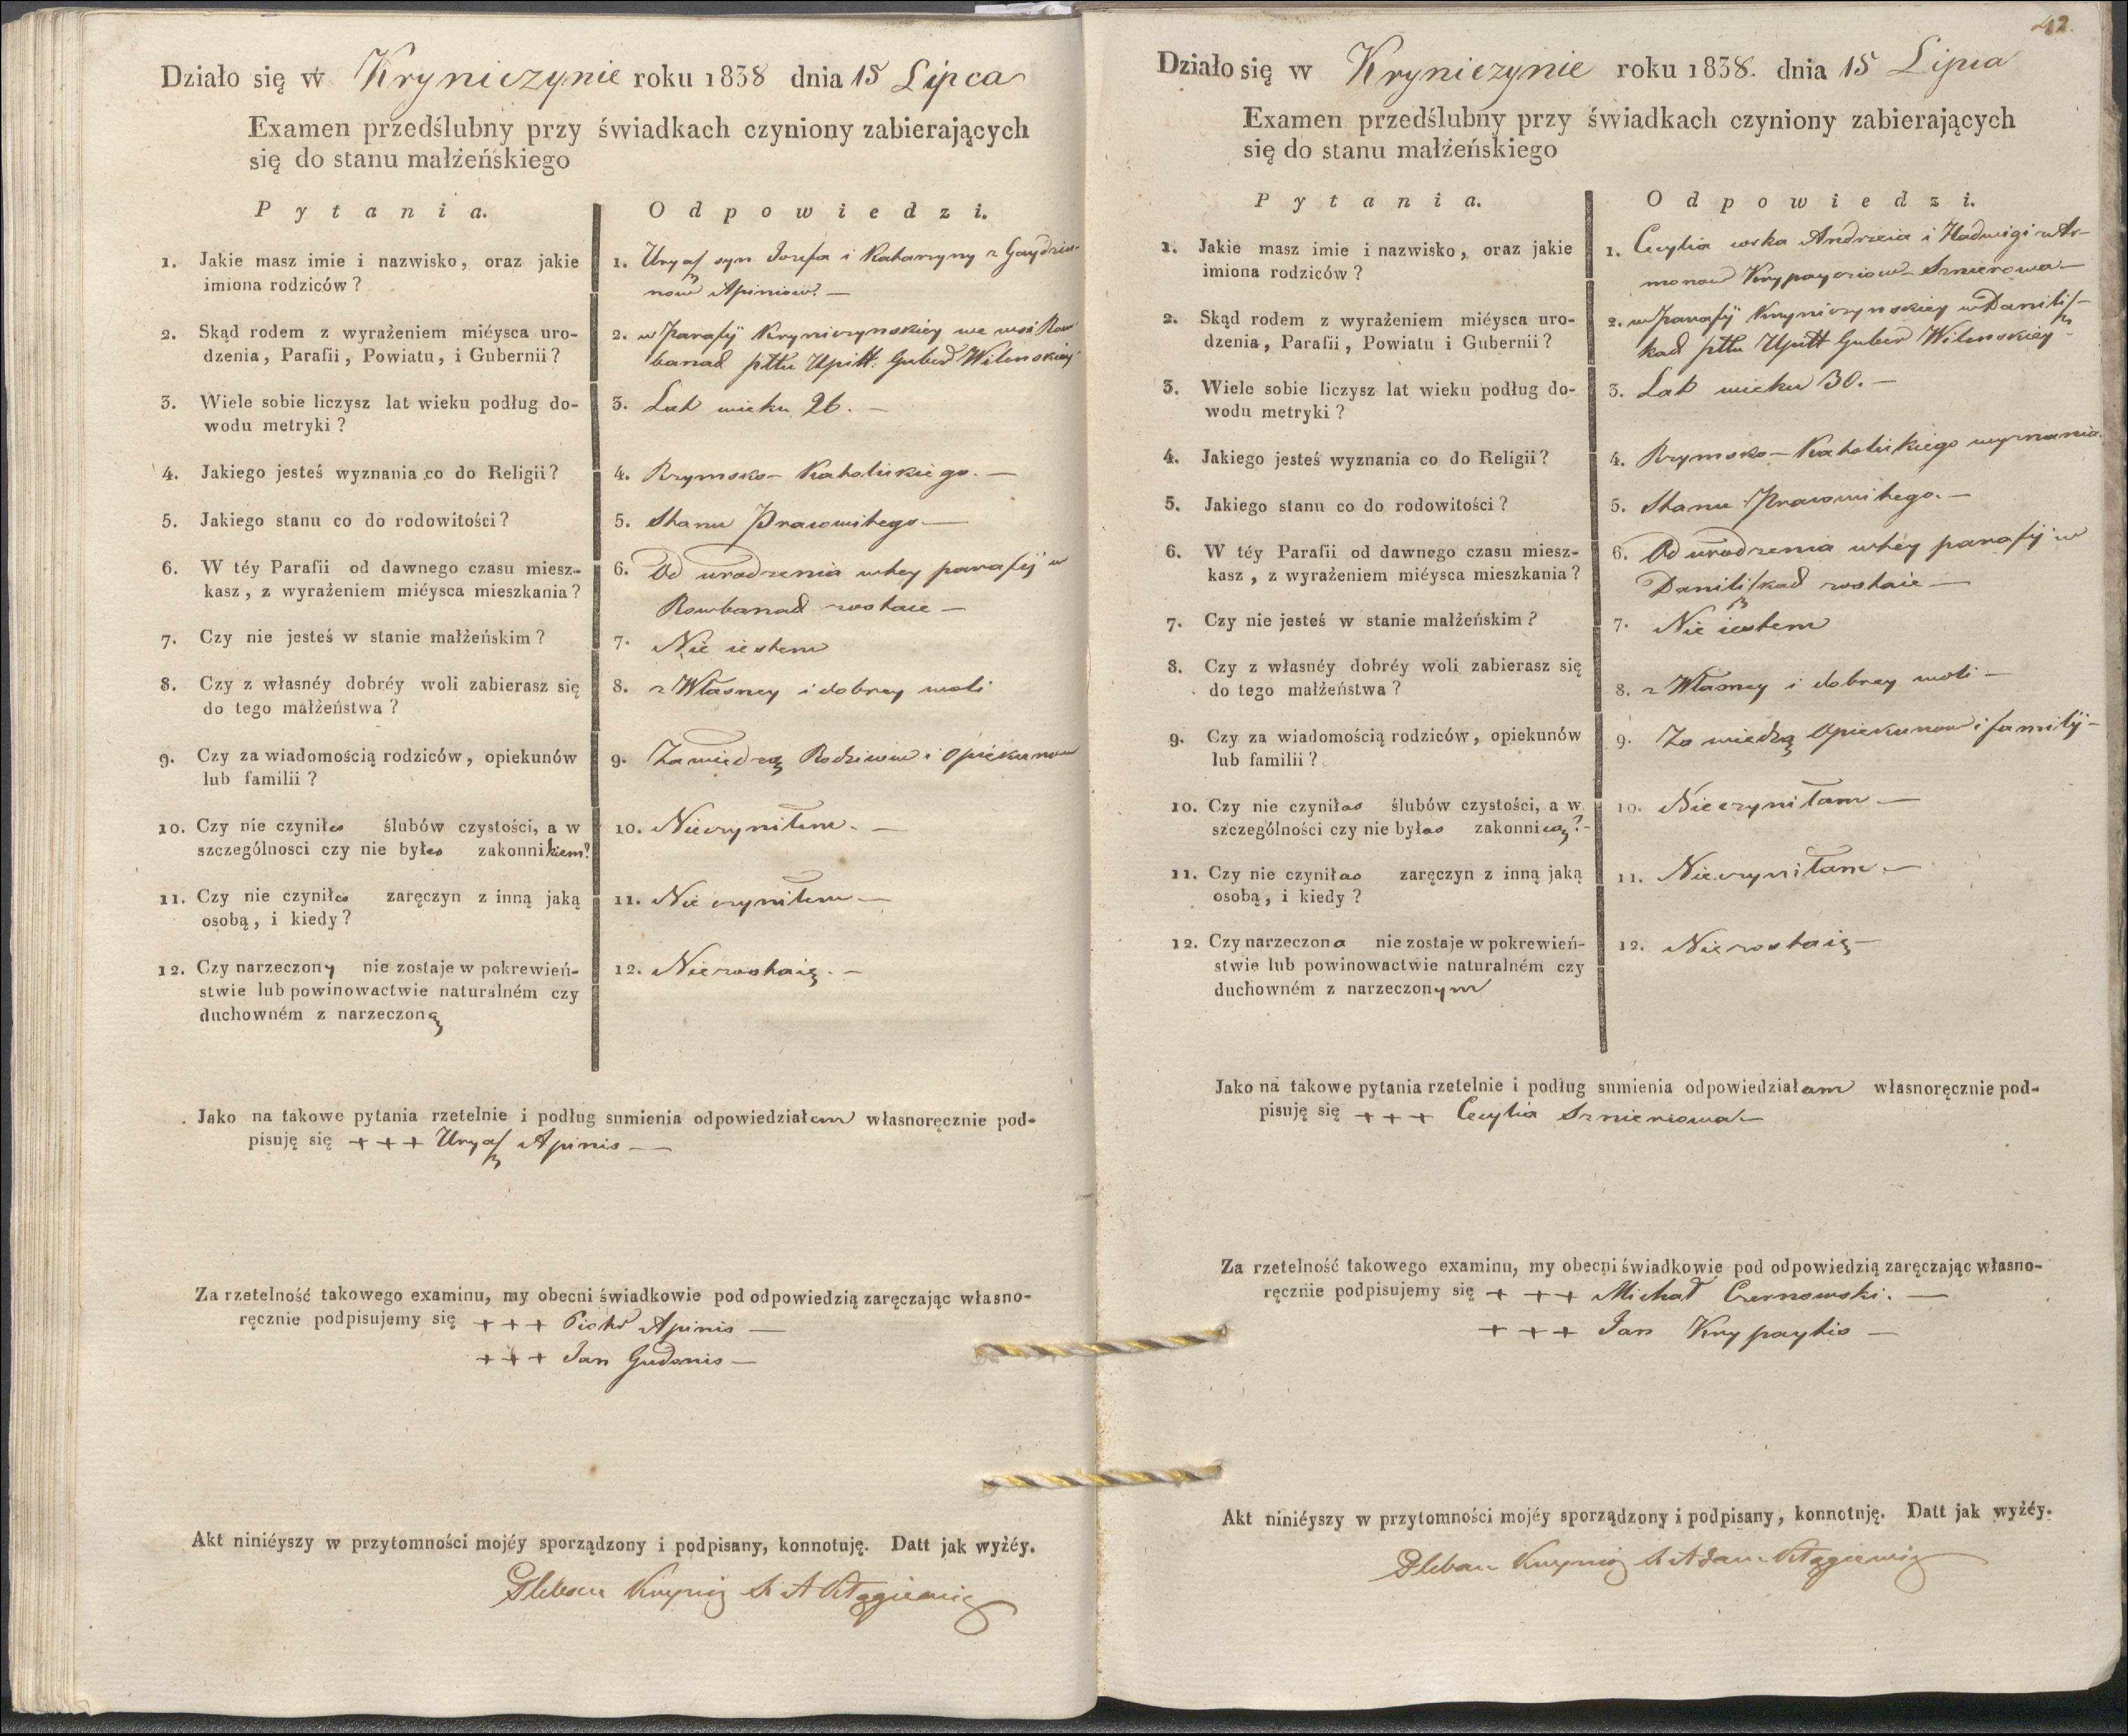 Działo się w Kryniczynie roku 1838 dnia 15 Lipca
Examen przedślubny przy świadkach czyniony zabierających
się do stanu małżeńskiego
Pytania.
Odpowiedzi.
1. Jakie masz imie i nazwisko, oraz jakie
imiona rodziców?
1. Uryaſz syn Jozefa i Katarzyny z Gaydzia-
now Apiniow. —
2. Skąd rodem z wyrażeniem miéysca uro-
dzenia, Parafii, Powiatu, i Gubernii?
2. w Parafij Kryniczynskiey we wsi Row
banad pttu Upitt: Guber Wilenskiey
3. Wiele sobie liczysz lat wieku podług do-
wodu metryki?
3. Lat wieku 26. —
4. Jakiego jesteś wyznania co do Religii?
4. Rzymsko-Katolickiego. —
5. Jakiego stanu co do rodowitości?
5. Stanu Pracowitego —
6. W téy Parafii od dawnego czasu miesz-
kasz, z wyrażeniem miéysca mieszkania?
6. Od urodzenia w tey parafij w
Rowbanad zostaie —
7. Czy nie jesteś w stanie małżeńskim?
7. Nie iestem
8. Czy z własnéy dobréy woli zabierasz się
do tego małżeństwa?
8. z Własney i dobrey woli
9. Czy za wiadomością rodziców, opiekunów
lub familii?
9. Za wiedzą Rodzicow i Opiekunow
10. Czy nie czyniłes ślubów czystości, a w
szczególnosci czy nie byłes zakonnikiem?
10. Nieczyniłem. —
11. Czy nie czyniłes zaręczyn z inną jaką
osobą, i kiedy?
11. Nie czyniłem —
12. Czy narzeczony nie zostaje w pokrewień-
stwie lub powinowactwie naturalném czy
duchowném z narzeczoną
12. Niezostaię. —
Jako na takowe pytania rzetelnie i podług sumienia odpowiedziałem własnoręcznie pod-
pisuję się +++ Uryaſz Apinis —
Za rzetelność takowego examinu, my obecni świadkowie pod odpowiedzią zaręczając własno-
ręcznie podpisujemy się +++ Piotr Apinis —
+++ Jan Gudonis —
Akt niniéyszy w przytomności mojéy sporządzony i podpisany, konnotuję. Datt jak wyżéy.
Pleban
42.
Działo się w Kryniczynie roku 1838. dnia 15 Lipca
Examen przedślubny przy świadkach czyniony zabierających
się do stanu małżeńskiego
Pytania.
Odpowiedzi.
1. Jakie masz imie i nazwisko, oraz jakie
imiona rodziców?
1. Cecylia corka Andrzeia i Hadwigi z Ar-
monow Krypayciow Sznierowa —
2. Skąd rodem z wyrażeniem miéysca uro-
dzenia, Parafii, Powiatu i Gubernii?
2. w Parafij Kryniczynskiey w Daniliſz-
kad pttu Upitt Guber Wilenskiey
3. Wiele sobie liczysz lat wieku podług do-
wodu metryki?
3. Lat wieku 30. —
4. Jakiego jesteś wyznania co do Religii?
4. Rzymsko-Katolickiego wyznania.
5. Jakiego stanu co do rodowitości?
5. Stanu Pracowitego. —
6. W téy Parafii od dawnego czasu miesz-
kasz, z wyrażeniem miéysca mieszkania?
6. Od urodzenia w tey parafij w
Daniliſzkad zostaie —
7. Czy nie jesteś w stanie małżeńskim?
7. Nie iestem
8. Czy z własnéy dobréy woli zabierasz się
do tego małżeństwa?
8. z Własney i dobrey woli —
9. Czy za wiadomością rodziców, opiekunów
lub familii?
9. Za wiedzą Opiekunow i familij —
10. Czy nie czyniłas ślubów czystości, a w
szczególności czy nie byłas zakonnicą? -
10. Nieczyniłam —
11. Czy nie czyniłas zaręczyn z inną jaką
osobą, i kiedy?
11. Nieczyniłam. —
12. Czy narzeczona nie zostaje w pokrewień-
stwie lub powinowactwie naturalném czy
duchowném z narzeczonym
12. Niezostaię —
Jako na takowe pytania rzetelnie i podług sumienia odpowiedziałam własnoręcznie pod-
pisuję się +++ Cecylia Sznierowa —
Za rzetelność takowego examinu, my obecni świadkowie pod odpowiedzią zaręczając własno-
ręcznie podpisujemy się +++ Michał Czernowski. —
+++ Jan Krypaytis —
Akt niniéyszy w przytomności mojéy sporządzony i podpisany, konnotuję. Datt jak wyżéy.
Pleban